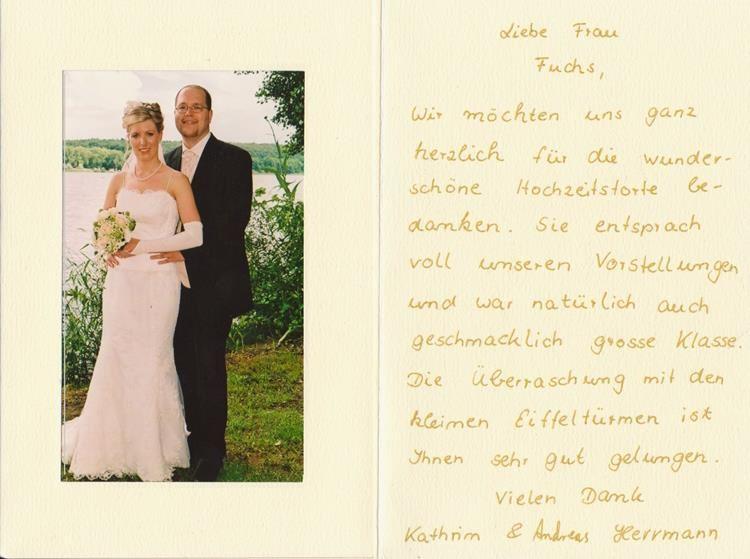 Liebe Frau
Fuchs,
Wir möchten uns ganz
herzlich für die wunder-
schöne Hochzeitstorte be-
danken. Sie entsprach
voll unseren Vorstellungen
und war natürlich auch
geschmacklich grosse Klasse.
Die Überraschung mit den
kleinen Eiffeltürmen ist
Ihnen sehr gut gelungen.
Vielen Dank
Kathrin & Andreas Herrmann